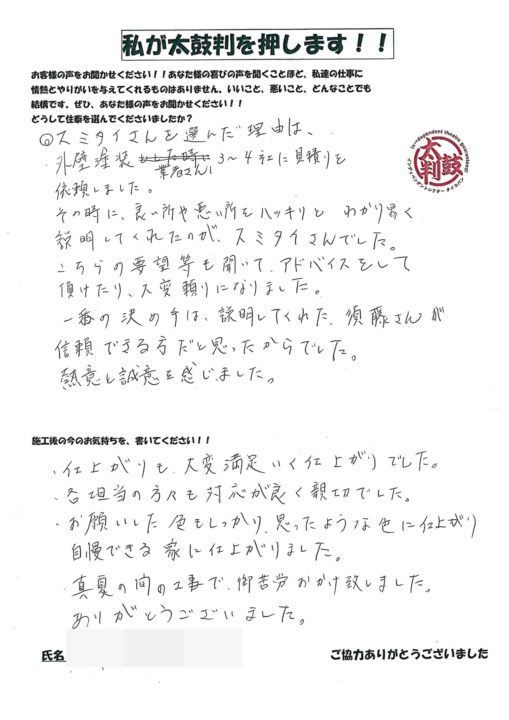 私が太鼓判を押します！！
お客様の声をお聞かせください！！あなた様の喜びの声を聞くことほど、私達の仕事に
情熱とやりがいを与えてくれるものはありません。いいこと、悪いこと、どんなことでも
結構です。ぜひ、あなた様の声をお聞かせください！！
どうして住泰を選んでくださいましたか？
◎スミタイさんを選んだ理由は、
外壁塗装業者さん、3〜4社に見積りを
依頼しました。
その時に、良い所や悪い所をハッキリと わかり易く
説明してくれたのが、スミタイさんでした。
こちらの要望等も聞いて、アドバイスをして
頂けたり、大変頼りになりました。
一番の決め手は、説明してくれた、須藤さんが
信頼できる方だと思ったからでした。
熱意と誠意を感じました。
太鼓判
施工後の今のお気持ちを、書いてください！！
・仕上がりも、大変満足いく仕上がりでした。
・各担当の方々も対応が良く親切でした。
・お願いした色もしっかり、思ったような色に仕上がり
自慢できる家に仕上がりました。
・真夏の間の工事で、御苦労おかけ致しました。
ありがとうございました。
氏名
ご協力ありがとうございました